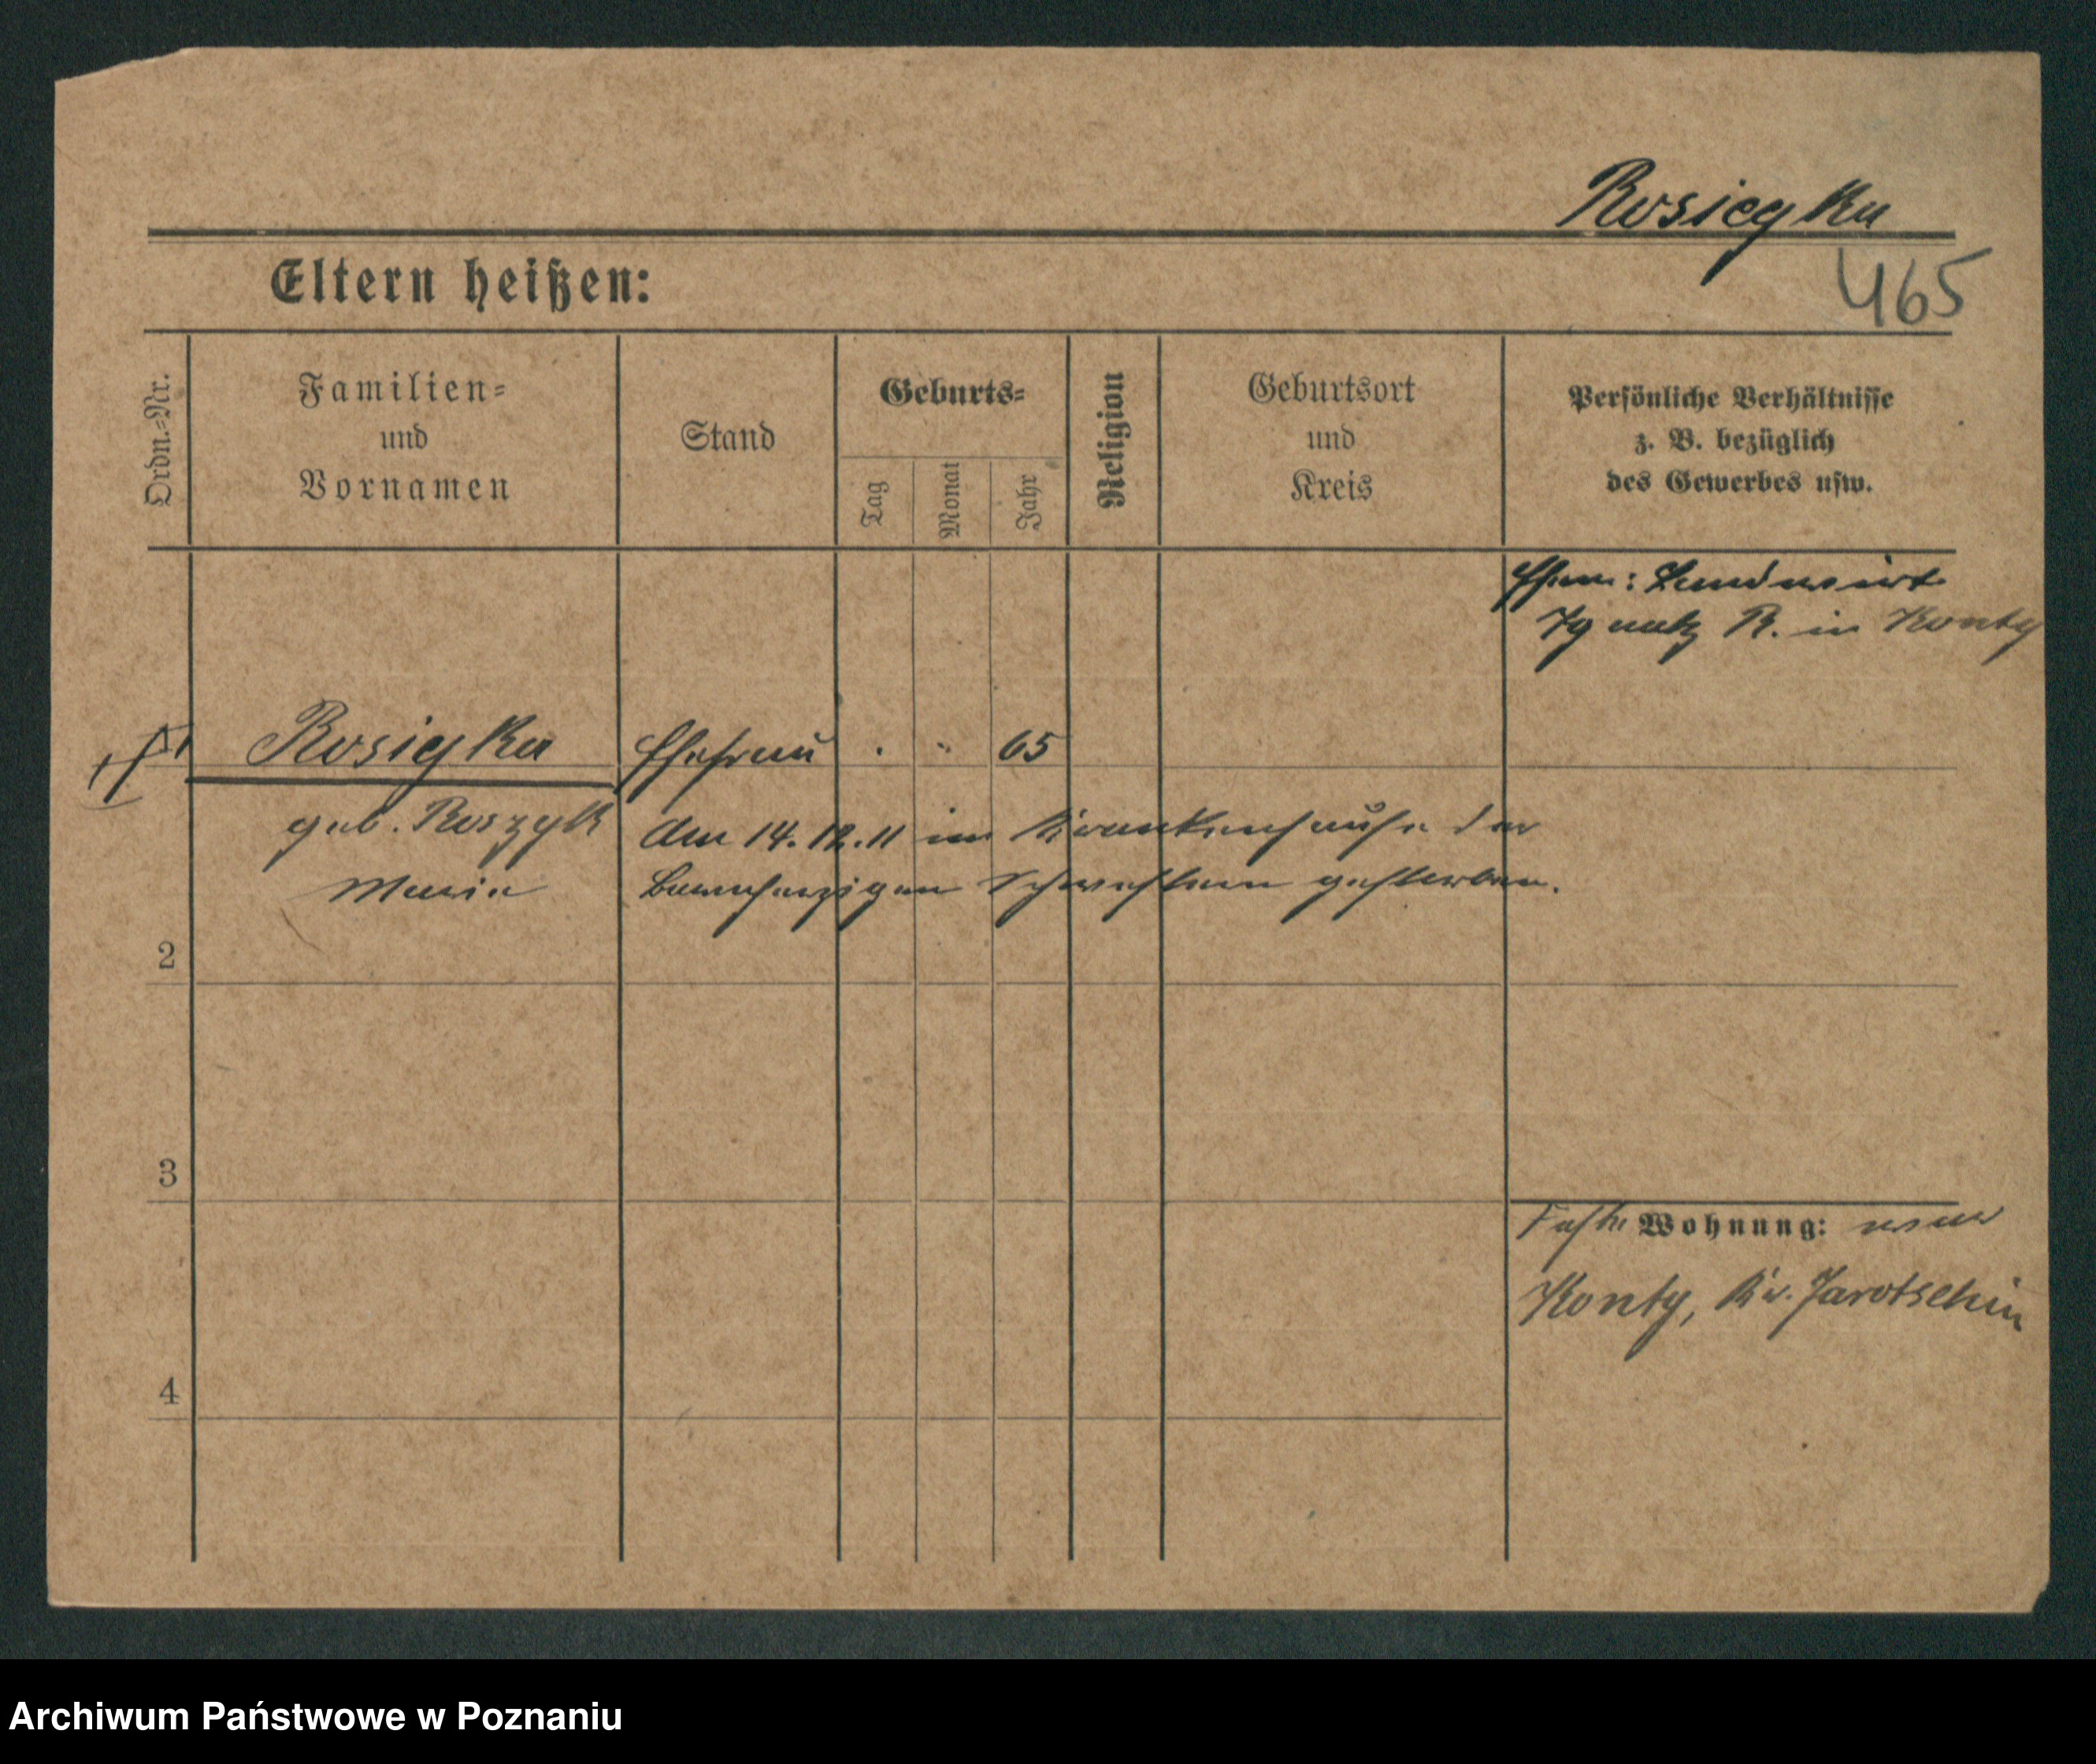 Rosiejka
465
Eltern heißen:
Ordn.-Nr.
Familien-
und
Vornamen
Stand
Geburts-
Tag
Monat
Jahr
Religion
Geburtsort
und
Kreis
Persönliche Verhältnisse
z. B. bezüglich
des Gewerbes usw.
Ehem: Landwirt
Ignatz R. in Konty
Rosiejka Ehefrau . " 65
geb. Roszyk Am 14.12.11 im Krankenhause der
Maria Barmherzigen Schwestern gestorben.
2
3
Feste Wohnung: war
Konty, Kr. Jarotschin
4
Archiwum Państwowe w Poznaniu